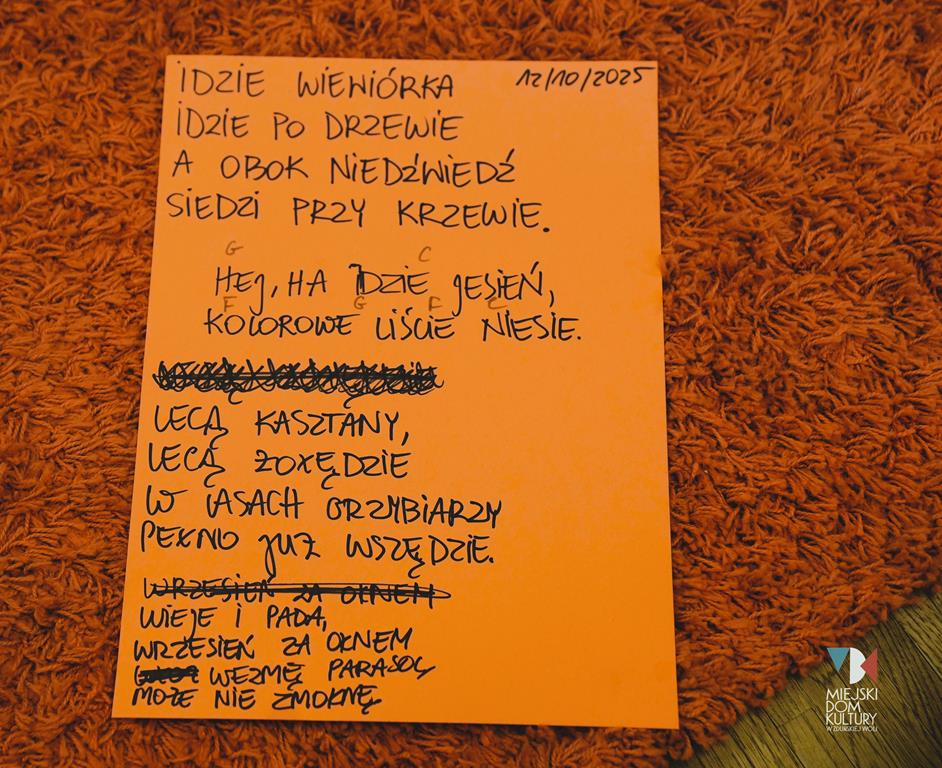 IDZIE WIEWIÓRKA 12/10/2025
IDZIE PO DRZEWIE
A OBOK NIEDŹWIEDŹ
SIEDZI PRZY KRZEWIE.
G C
HEJ, HA IDZIE JESIEŃ,
F G F C
KOLOROWE LIŚCIE NIESIE.
LECĄ KASZTANY,
LECĄ ŻOŁĘDZIE
W LASACH GRZYBIARZY
PEŁNO JUŻ WSZĘDZIE.
WRZESIEŃ ZA OKNEM
WIEJE I PADA,
WRZESIEŃ ZA OKNEM
WEZMĘ PARASOL
MOŻE NIE ZMOKNĘ
MIEJSKI
DOM
KULTURY
W ZDUŃSKIEJ WOLI